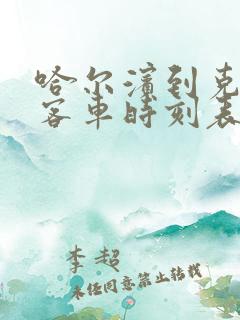 哈尔滨到克
客车时刻表
李超
未经同意禁止转载